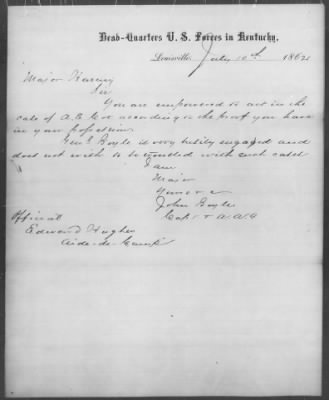 Head-Quarters U. S. Forces in Kentucky,
Louisville, July 10th 1862
Major
Sir
You are empowered to act in the
case of A. B. according to the proof you have
in your possession.
Genl Boyle is very busily engaged and
does not wish to be troubled with such cases
I am
Major
Yours &c
John Boyle
Capt & A. A. G
Official
Edward Hughes
Aide-de-Camp